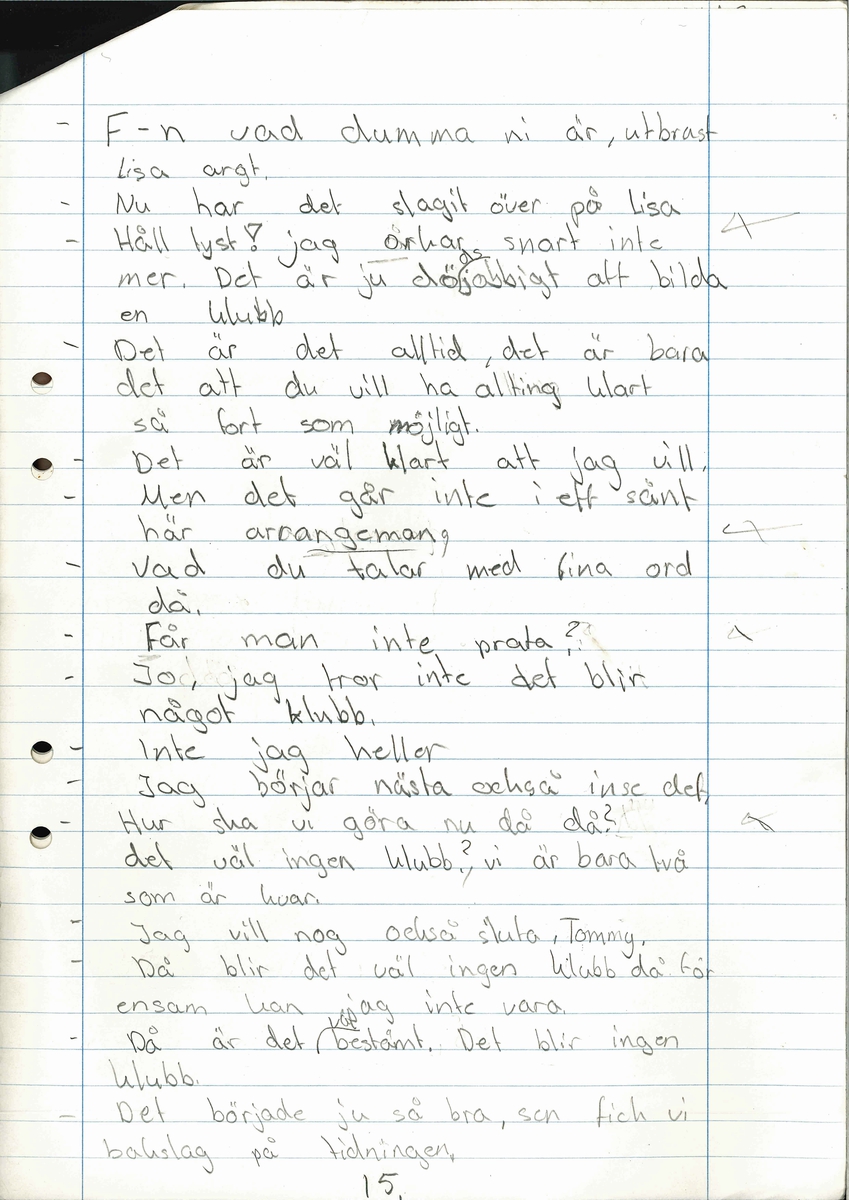 - F-n vad dumma ni är, utbrast
Lisa argt.
- Nu har det slagit över på Lisa
- Håll tyst! jag orkar snart inte
mer. Det är ju dösjobbigt att bilda
en klubb
- Det är det alltid, det är bara
det att du vill ha allting klart
så fort som möjligt.
- Det är väl klart att jag vill.
- Men det går inte i ett sånt
här arrangemang,
- Vad du talar med fina ord
då.
- Får man inte prata?
- Jo, jag tror inte det blir
något klubb.
- Inte jag heller
- Jag börjar nästa också inse det,
- Hur ska vi göra nu då då?
det väl ingen klubb? vi är bara två
som är kvar.
- Jag vill nog också sluta, Tommy.
- Då blir det väl ingen klubb då för
ensam kan jag inte vara.
- Då är det väl bestämt. Det blir ingen
klubb.
- Det började ju så bra, sen fick vi
bakslag på tidningen.
15.